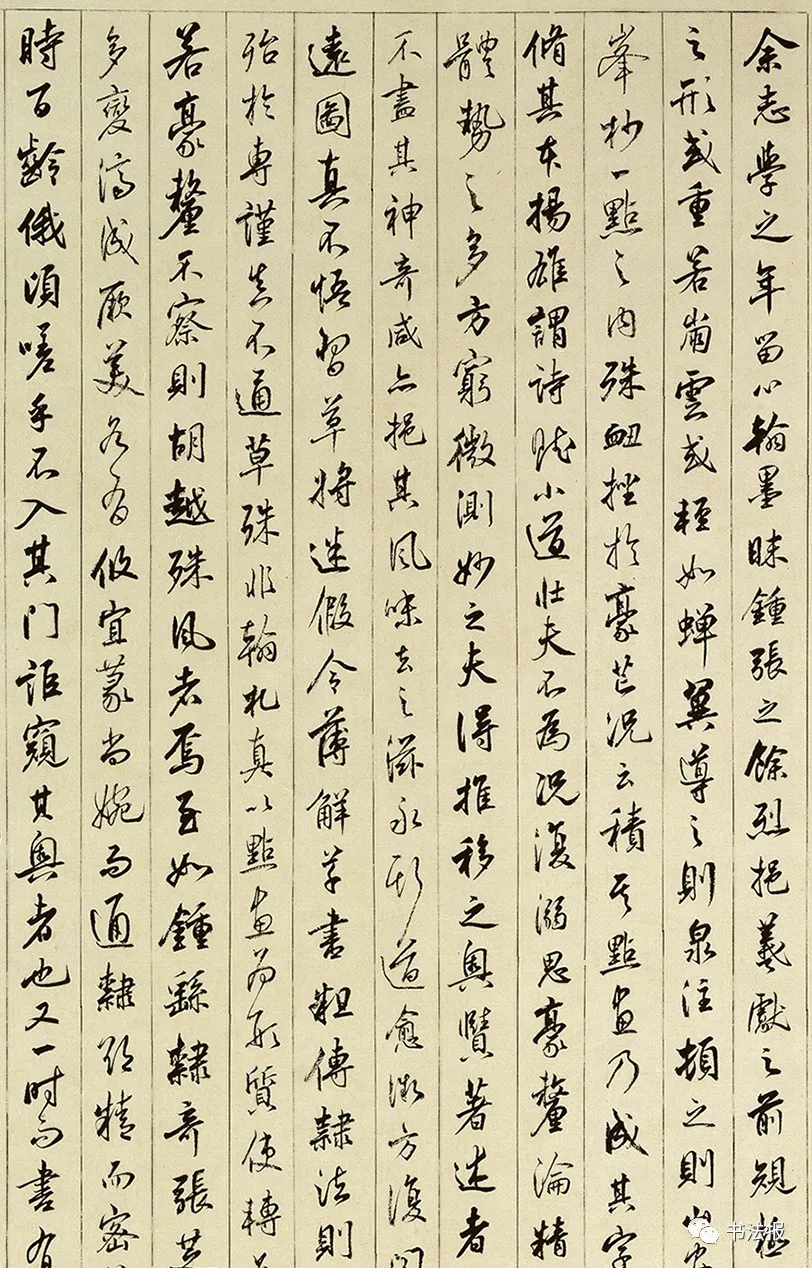 余志學之年留心翰墨味鍾張之餘烈挹羲獻之前規極
之形或重若崩雲或輕如蟬翼導之則泉注頓之則山安
峯杪一點之內殊衄挫於豪芒況云積其點畫乃成其字
脩其本揚雄謂詩賦小道壯夫不為況復溺思豪釐淪精
體勢之多方窮微測妙之夫得推移之奧賾著述者
不盡其神奇咸亦挹其風味去之滋永斯道愈微方復聞
遠圖真不悟習草將迷假令薄解草書粗傳隸法則
殆於專謹真不通草殊非翰札真以點畫為形質使轉
若豪釐不察則胡越殊風者焉至如鍾繇隸奇張芝
多變濟成厥美各有攸宜篆尚婉而通隸欲精而密
時百齡俄頃嗟乎不入其門詎窺其奧者也又一時而書有
书法报